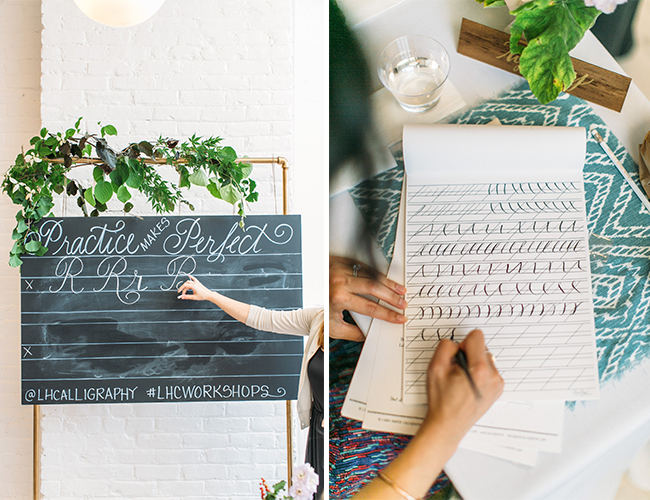 Practice MAKES Perfect
x R Rr R
x
@LHCALLIGRAPHY #LHCWORKSHOPS